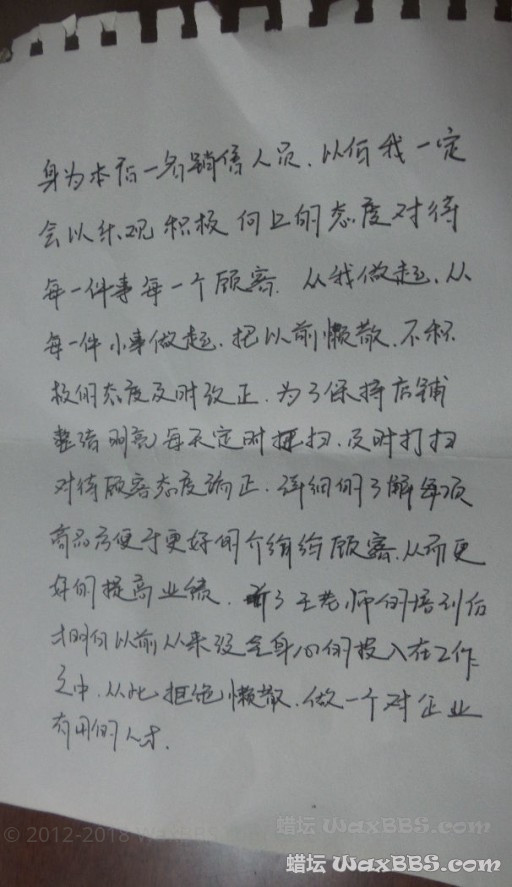 身为本店一名销售人员、以后我一定
会以乐观积极向上的态度对待
每一件事每一个顾客. 从我做起、从
每一件小事做起、把以前懒散、不积
极的态度及时改正. 为了保持店铺
整洁明亮每天定时打扫、及时打扫
对待顾客态度端正. 详细的了解每项
商品方便于更好的介绍给顾客、从而更
好的提高业绩. 听了王老师的培训后
才明白以前从来没全身心的投入在工作
之中、从此拒绝懒散、做一个对企业
有用的人才.
© 2012-2018 WaxBBS.com
蜡坛 WaxBBS.com
蜡坛 WaxBBS.com